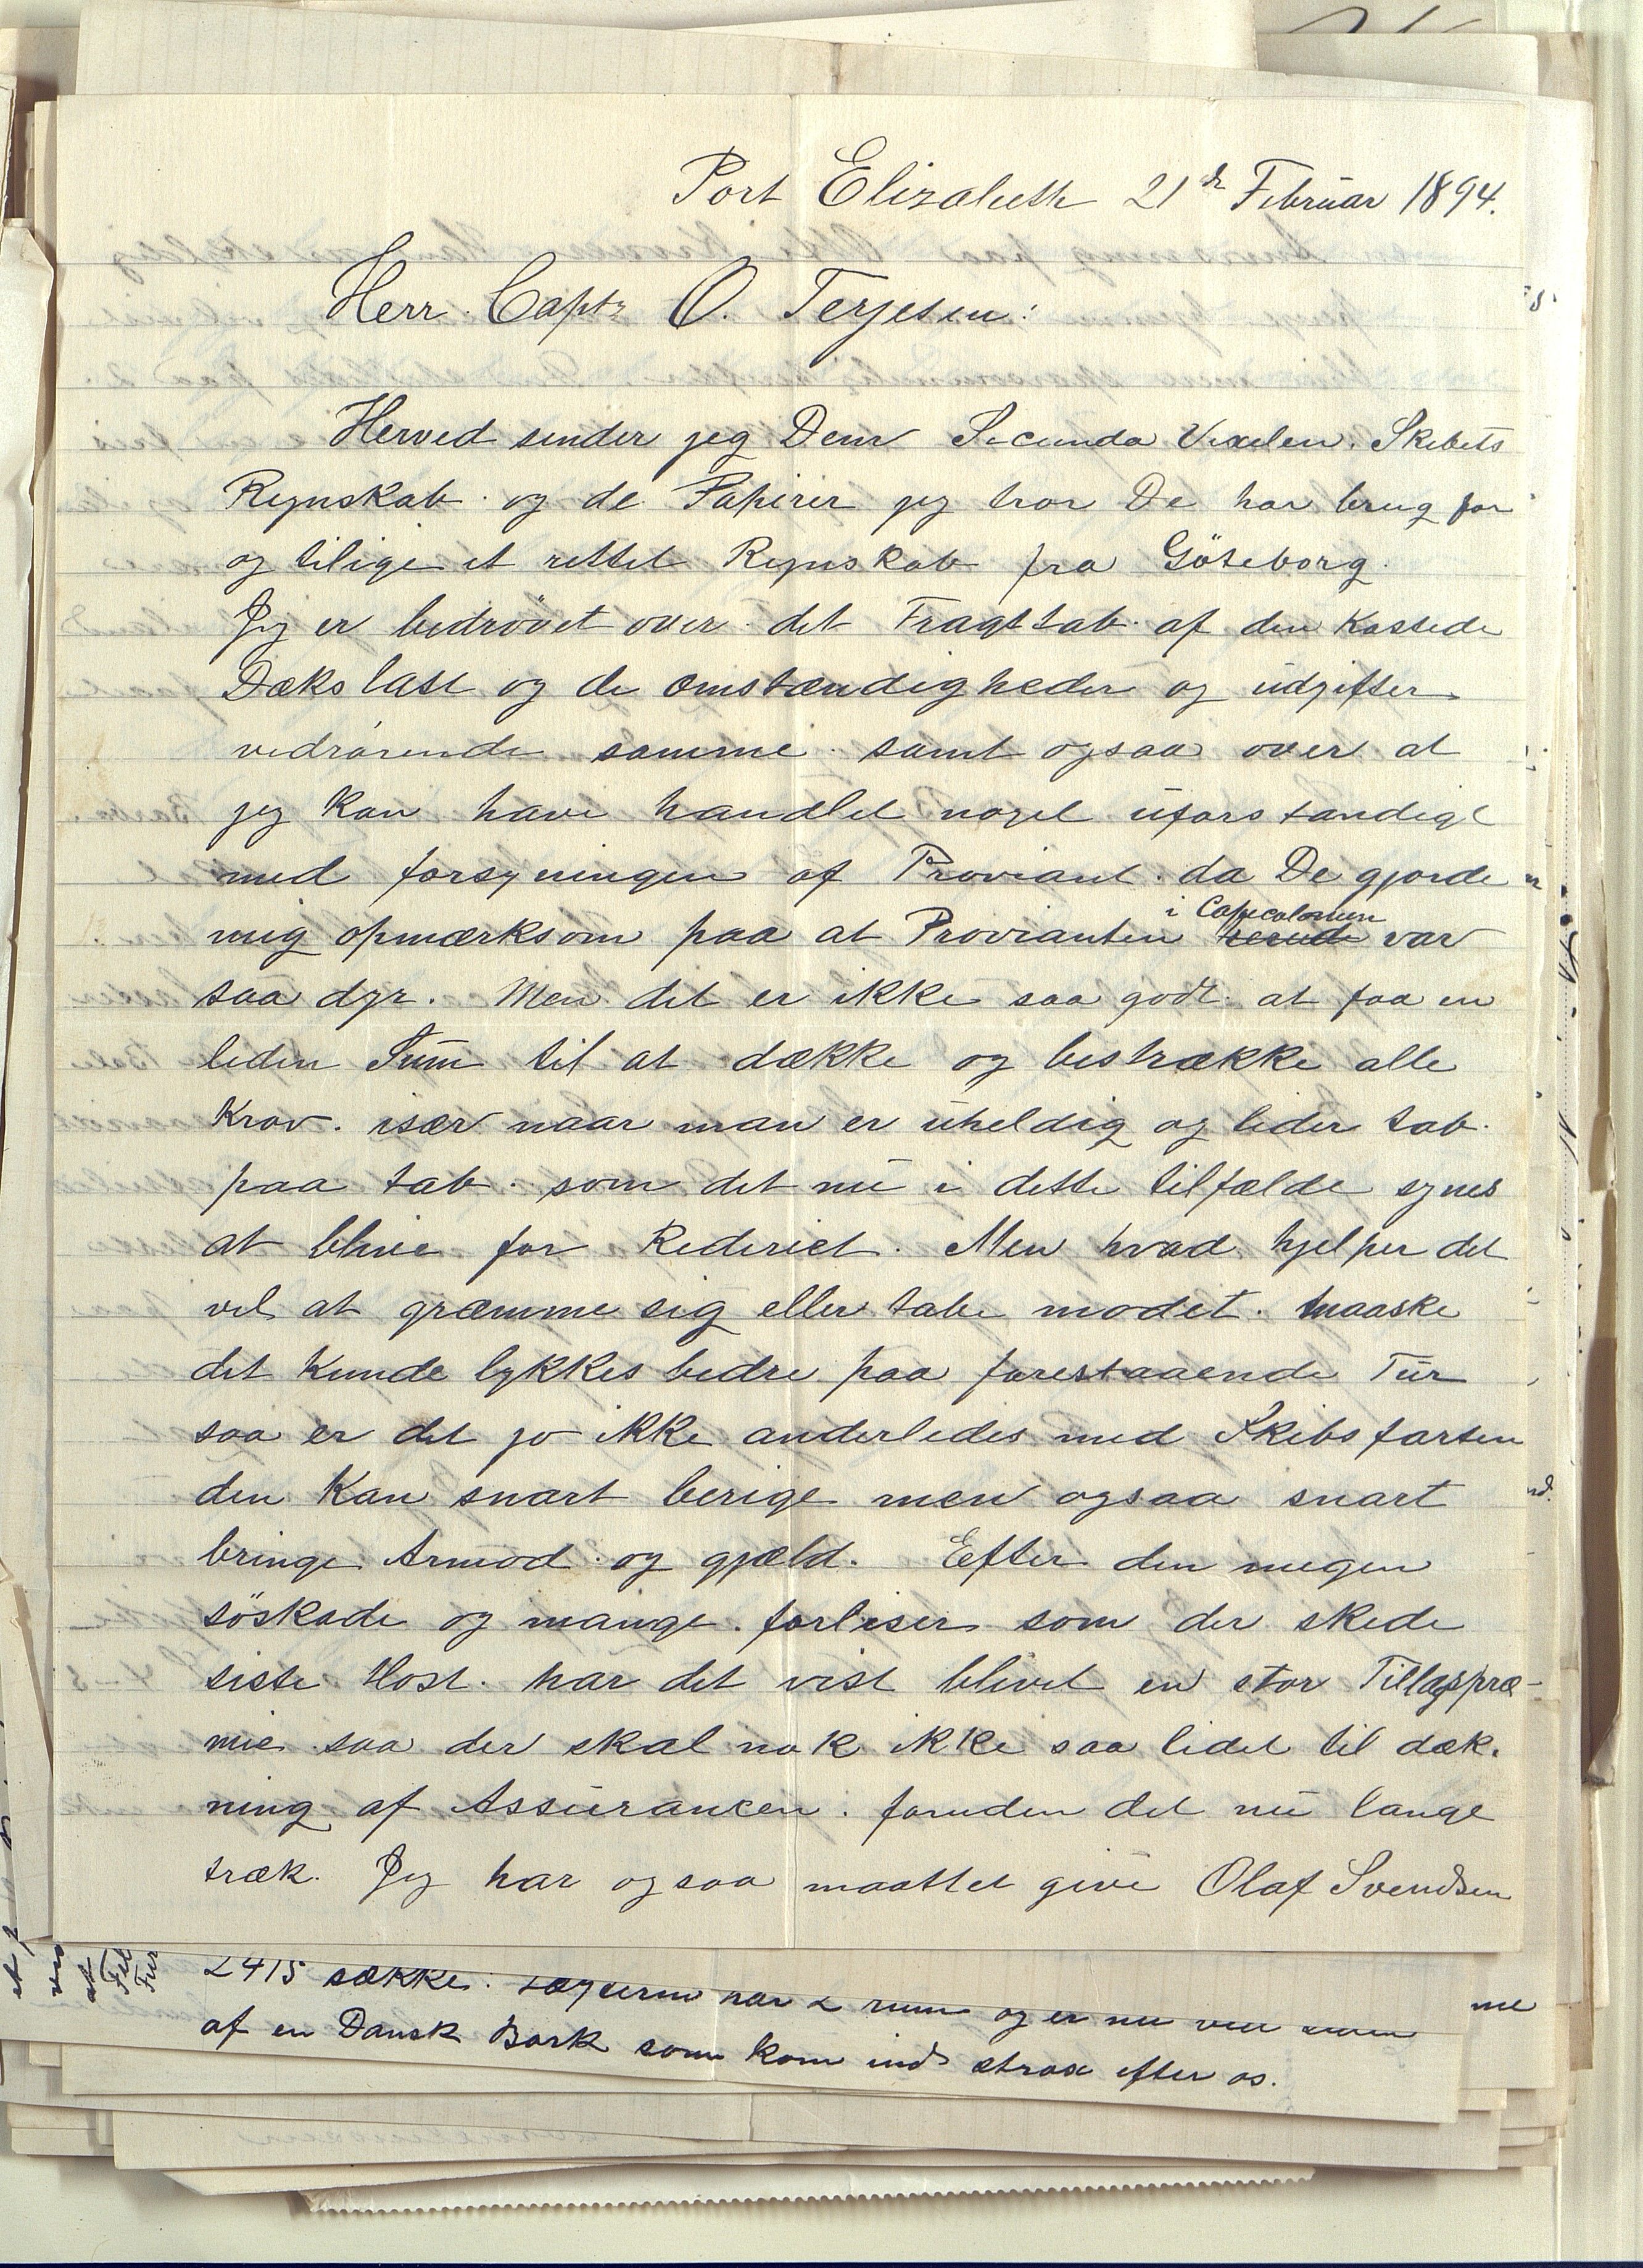 Port Elizabeth 21de Februar 1894.
Herr. Captn O. Terjesen:
Herved sender jeg Dem Secunda Vexelen. Skibets
Regnskab og de Papirer jeg tror De har brug for
og tilige et rettet Regnskab fra Göteborg.
Jeg er bedrövet over det Fragttab af den Kastede
Dækslast og de omstændigheder og udgifter
vedrørende samme. samt ogsaa over at
jeg kan have handlet noget uforstandigt
med forsyningen af Proviant. da De gjorde
mig opmærksom paa at Provianten i Capcolonien var
saa dyr. Men det er ikke saa godt at faa en
liden Sum til at dække og bestrække alle
Krav. især naar man er uheldig og lider tab.
paa tab. som det nu i dette tilfælde synes
at blive for Rederiet. Men hvad hjelper det
vel at græmme sig eller tabe modet. maaske
det kunde lykkes bedre paa forestaaende Tur
saa er det jo ikke anderledes med Skibsfarten
den kan snart berige men ogsaa snart
bringe Armod og gjæld. Eefter den megen
söskade og mange forliser som der skede
siste Høst. har det vist blivet en stor Tillægspræ-
mie saa der skal nok ikke saa lidet til dæk.
ning af Assurancen. foruden det nu lange
træk. Jeg har ogsaa maattet give Olaf Svendsen
2415 sække. og er nu
af en Dansk Bark som kom ind strax efter os.